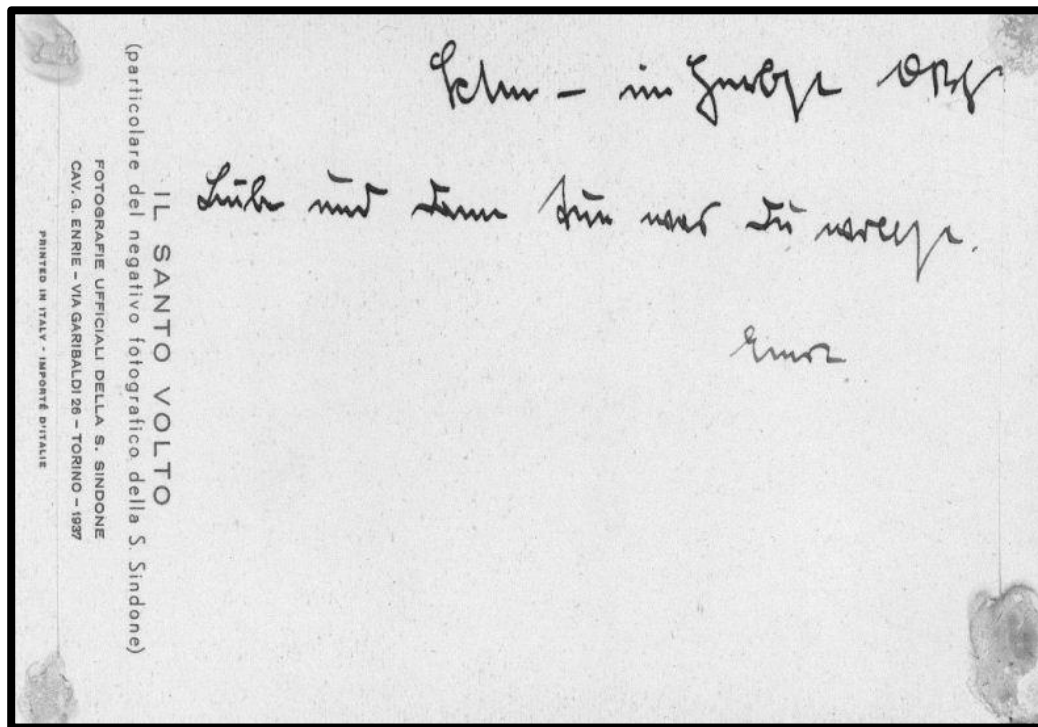 im Herbst
Liebe und dann tue was Du willst.
Ernst
IL SANTO VOLTO
(particolare del negativo fotografico della S. Sindone)
FOTOGRAFIE UFFICIALI DELLA S. SINDONE
CAV. G. ENRIE – VIA GARIBALDI 26 – TORINO – 1937
PRINTED IN ITALY - IMPORTÉ D'ITALIE